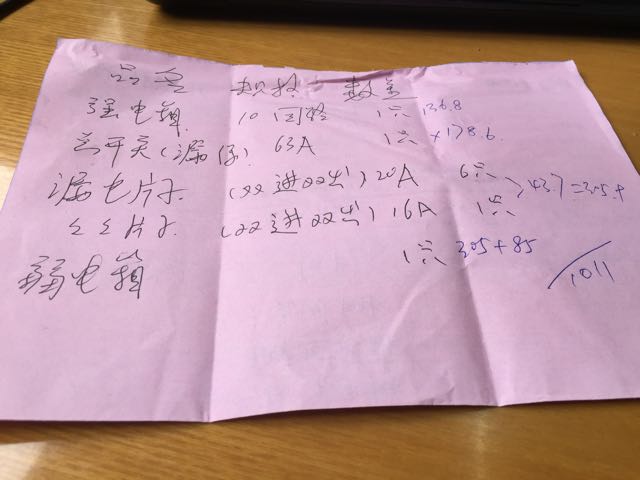 品名 规格 数量
强电箱 10回路 1只 136.8
总开关(漏保) 63A 1只 +178.6
漏电片子 (双进双出) 20A 6只
〃〃片子 (双进双出) 16A 1只 43.7=305.9
弱电箱 1只 305+85
1011